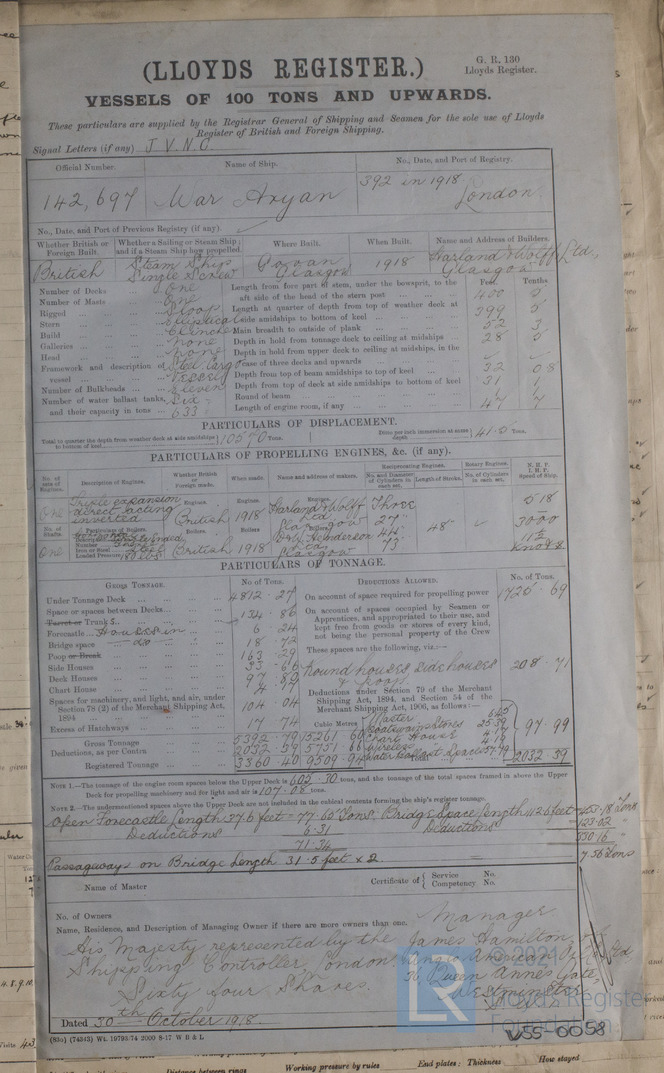 G. R. 130
(LLOYDS REGISTER.)
Lloyds Register.
VESSELS OF 100 TONS AND UPWARDS.
These particulars are supplied by the Registrar General of Shipping and Seamen for the sole use of Lloyds
Register of British and Foreign Shipping.
Signal Letters (if any) J V. N. C.
Official Number. Name of Ship. No., Date, and Port of Registry.
142,697 War Aryan 392 in 1918 London.
No., Date, and Port of Previous Registry (if any).
Whether British or Foreign Built. Whether a Sailing or Steam Ship; and if a Steam Ship how propelled. Where Built. When Built. Name and Address of Builders.
British Steam Ship Single Screw Govan Glasgow 1918 Harland & Wolff Ltd, Glasgow
Feet. Tenths
Number of Decks One Length from fore part of stem, under the bowsprit, to the
Number of Masts One aft side of the head of the stern post 400
Rigged Sloop Length at quarter of depth from top of weather deck at
Stern Elliptical side amidships to bottom of keel 399 5
Build Clencher Main breadth to outside of plank 52 3
Galleries None Depth in hold from tonnage deck to ceiling at midships 28 5
Head None Depth in hold from upper deck to ceiling at midships, in the
Framework and description of vessel Steel Cargo Vessel case of three decks and upwards
Depth from top of beam amidships to top of keel 32 08
Number of Bulkheads Seven Depth from top of deck at side amidships to bottom of keel 31 1
Number of water ballast tanks, Six Round of beam 1
and their capacity in tons 633 Length of engine room, if any 47 7
PARTICULARS OF DISPLACEMENT.
Total to quarter the depth from weather deck at side amidships to bottom of keel Tons. Ditto per inch immersion at same depth 41.2 Tons.
PARTICULARS OF PROPELLING ENGINES, &c. (if any).
No. of sets of Engines. Description of Engines. Whether British or Foreign made. When made. Name and address of makers. Reciprocating Engines. Rotary Engines. N. H. P. I. H. P. Speed of Ship.
No. and Diameter of Cylinders in each set. Length of Stroke. No. of Cylinders in each set.
One Triple expansion direct acting inverted Engines. British Engines. 1918 Engines. Harland & Wolff Ltd Glasgow Three 27" 44" 73" 48" 518 3000 11½ Knots
No. of Shafts. Particulars of Boilers. Boilers. Boilers Boilers.
One Number Iron or Steel Steel Loaded Pressure 180 lbs British 1918 Henderson Ltd Glasgow
PARTICULARS OF TONNAGE.
GROSS TONNAGE. No of Tons. DEDUCTIONS ALLOWED. No. of Tons.
Under Tonnage Deck 4812.27 On account of space required for propelling power 1725.69
Space or spaces between Decks On account of spaces occupied by Seamen or
Turret or Trunks 134.86 Apprentices, and appropriated to their use, and
Forecastle Houses in 6.24 kept free from goods or stores of every kind,
Bridge space do 18.72 not being the personal property of the Crew
Poop or Break 163.29 These spaces are the following, viz:—
Side Houses 33.66 Round houses side houses
Deck Houses 97.89 & Poop. 208.71
Chart House 4.17 Deductions under Section 79 of the Merchant
Spaces for machinery, and light, and air, under Shipping Act, 1894, and Section 54 of the
Section 78 (2) of the Merchant Shipping Act, Merchant Shipping Act, 1906, as follows:—
1894 104.04 Master 6.45
Excess of Hatchways 17.74 Cubic Metres Boatswains Stores 25.39
Gross Tonnage 5392.79 15261.60 Chart House 4.17 97.99
Deductions, as per Contra 2032.39 5751.66 Wireless
Registered Tonnage 3360.40 9509.94 Water Ballast Spaces 57.79 2032.39
NOTE 1.—The tonnage of the engine room spaces below the Upper Deck is 605.30 tons, and the tonnage of the total spaces framed in above the Upper
Deck for propelling machinery and for light and air is 107.08 tons.
NOTE 2.—The undermentioned spaces above the Upper Deck are not included in the cubical contents forming the ship's register tonnage:—
Open Forecastle Length 37.6 feet = 77.65 Tons Bridge Space Length 112.6 feet 453.18 Tons
Deductions 6.31 Deductions 123.02
71.34 330.16
Passageways on Bridge Length 31.5 feet x 2 7.56 Tons
Name of Master Certificate of { Service No. Competency No.
No. of Owners
Name, Residence, and Description of Managing Owner if there are more owners than one.
Manager
His Majesty represented by the James Hamilton
Shipping Controller, London Anglo American Oil Co Ltd
36 Queen Anne's Gate,
Sixty four Shares. Westminster,
Dated 30th October 1918.
(83o) (74343) Wt. 19793/74 2000 8-17 W B & L
© 2021
LR
Lloyd's Register
Foundation
W55-0058
Distance between rings Working pressure by rules End plates: Thickness How stayed